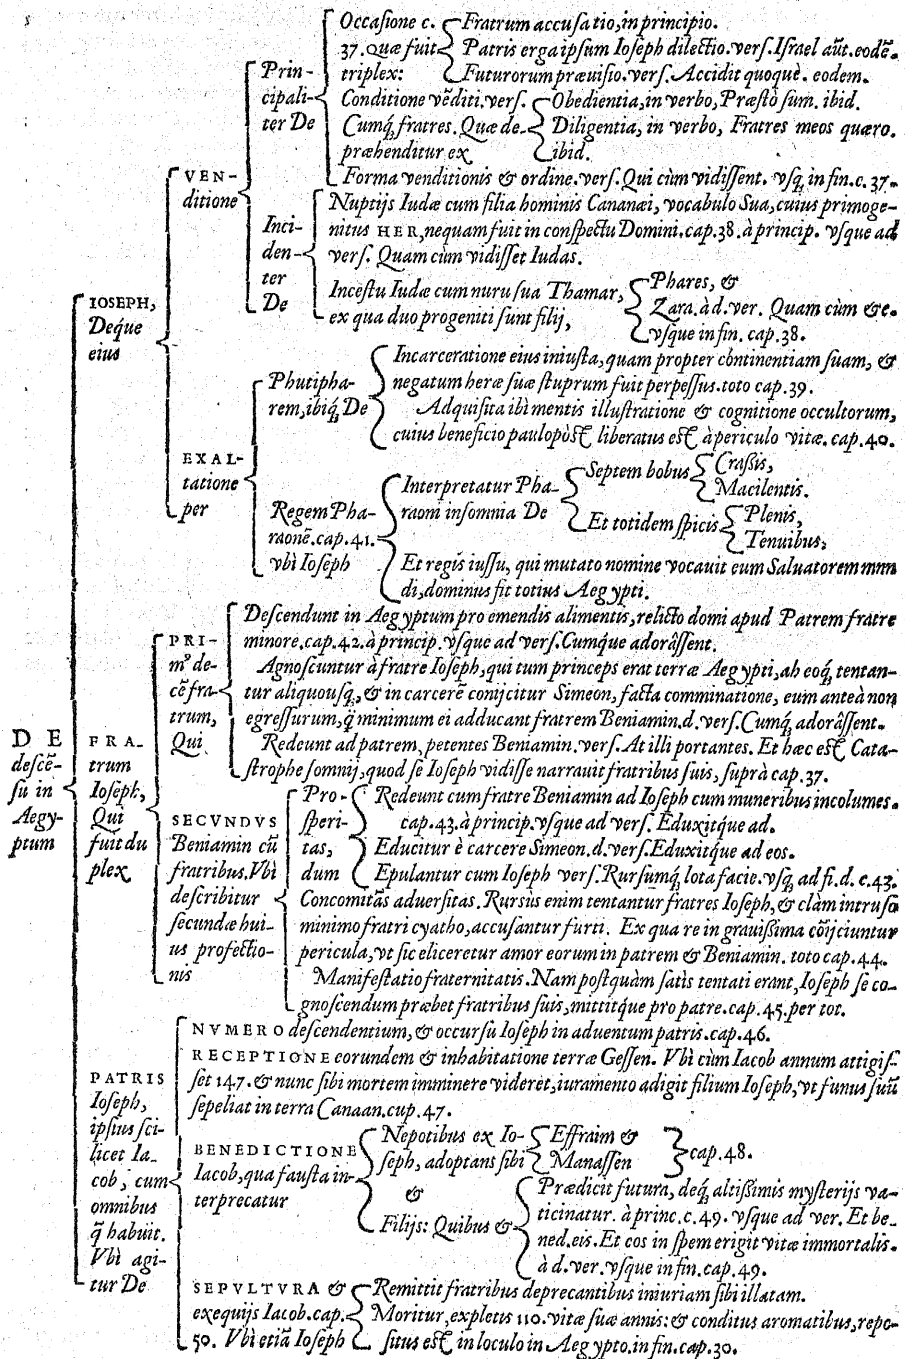 DE
descē-
sū in
Aegy-
ptum
IOSEPH,
Deq́ue
eius
VEN-
ditione
Prin-
cipali-
ter De
Occasione c.
37. Quæ fuit
triplex:
Fratrum accusatio, in principio.
Patris erga ipsum Ioseph dilectio. vers. Israel aūt. eodē.
Futurorum præuisio. vers. Accidit quoquè. eodem.
Conditione vēditi. vers.
Cumq́ fratres. Quæ de-
præhenditur ex
Obedientia, in verbo, Præstò sum. ibid.
Diligentia, in verbo, Fratres meos quæro.
ibid.
Forma venditionis & ordine. vers. Qui cùm vidissent. vsq́ in fin. c. 37.
Inci-
den-
ter
De
Nuptijs Iudæ cum filia hominis Cananæi, vocabulo Sua, cuius primoge-
nitus HER, nequam fuit in conspectu Domini. cap. 38. à princip. vsque ad
vers. Quam cùm vidisset Iudas.
Incestu Iudæ cum nuru sua Thamar,
ex qua duo progeniti sunt filij,
Phares, &
Zara. à d. ver. Quam cùm &c.
vsque in fin. cap. 38.
EXAL-
tatione
per
Phutipha-
rem, ibiq́ De
Incarceratione eius iniusta, quam propter continentiam suam, &
negatum heræ suæ stuprum fuit perpessus. toto cap. 39.
Adquisita ibi mentis illustratione & cognitione occultorum,
cuius beneficio paulopòst liberatus est à periculo vitæ. cap. 40.
Regem Pha-
raonē. cap. 41.
vbì Ioseph
Interpretatur Pha-
raoni insomnia De
Septem bobus
Crassis,
Macilentis.
Et totidem spicis
Plenis,
Tenuibus,
Et regis iussu, qui mutato nomine vocauit eum Saluatorem mun
di, dominus fit totius Aegypti.
FRA-
trum
Ioseph,
Qui
fuit du
plex
PRI-
m⁹ de-
cē fra-
trum,
Qui
Descendunt in Aegyptum pro emendis alimentis, relicto domi apud Patrem fratre
minore. cap. 42. à princip. vsque ad vers. Cumq́ue adorâssent.
Agnoscuntur à fratre Ioseph, qui tum princeps erat terræ Aegypti, ab eoq́ tentan-
tur aliquousq́, & in carcerē conijcitur Simeon, facta comminatione, eum anteà non
egressurum, q̄ minimum ei adducant fratrem Beniamin. d. vers. Cumq́ adorâssent.
Redeunt ad patrem, petentes Beniamin. vers. At illi portantes. Et hæc est Cata-
strophe somnij, quod se Ioseph vidisse narrauit fratribus suis, suprà cap. 37.
SECVNDVS
Beniamin cū
fratribus. Vbì
describitur
secundæ hui-
us profectio-
nis
Pro-
speri-
tas,
dum
Redeunt cum fratre Beniamin ad Ioseph cum muneribus incolumes.
cap. 43. à princip. vsque ad vers. Eduxitq́ue ad.
Educitur è carcere Simeon. d. vers. Eduxitq́ue ad eos.
Epulantur cum Ioseph vers. Rursumq́ lota facie. vsq́ ad fi. d. c. 43.
Concomitās aduersitas. Rursus enim tentantur fratres Ioseph, & clàm intruso
minimo fratri cyatho, accusantur furti. Ex qua re in grauissima cōijciuntur
pericula, vt sic eliceretur amor eorum in patrem & Beniamin. toto cap. 44.
Manifestatio fraternitatis. Nam postquàm satis tentati erant, Ioseph se co-
gnoscendum præbet fratribus suis, mittitq́ue pro patre. cap. 45. per tot.
PATRIS
Ioseph,
ipsius sci-
licet Ia-
cob, cum
omnibus
q̄ habuit.
Vbì agi-
tur De
NVMERO descendentium, & occursu Ioseph in aduentum patris. cap. 46.
RECEPTIONE eorundem & inhabitatione terræ Gessen. Vbì cùm Iacob annum attigis-
set 147. & nunc sibi mortem imminere videret, iuramento adigit filium Ioseph, vt funus suū
sepeliat in terra Canaan. cup. 47.
BENEDICTIONE
Iacob, qua fausta in-
terprecatur
Nepotibus ex Io-
seph, adoptans sibi
Effraim &
Manassen
cap. 48.
&
Filijs: Quibus &
Prædicit futura, deq́ altissimis mysterijs va-
ticinatur. à princ. c. 49. vsque ad ver. Et be-
ned. eis. Et eos in spem erigit vitæ immortalis.
à d. ver. vsque in fin. cap. 49.
SEPVLTVRA &
exequijs Iacob. cap.
50. Vbi etiā Ioseph
Remittit fratribus deprecantibus iniuriam sibi illatam.
Moritur, expletis 110. vitæ suæ annis: & conditus aromatibus, repo-
situs est in loculo in Aegypto. in fin. cap. 30.